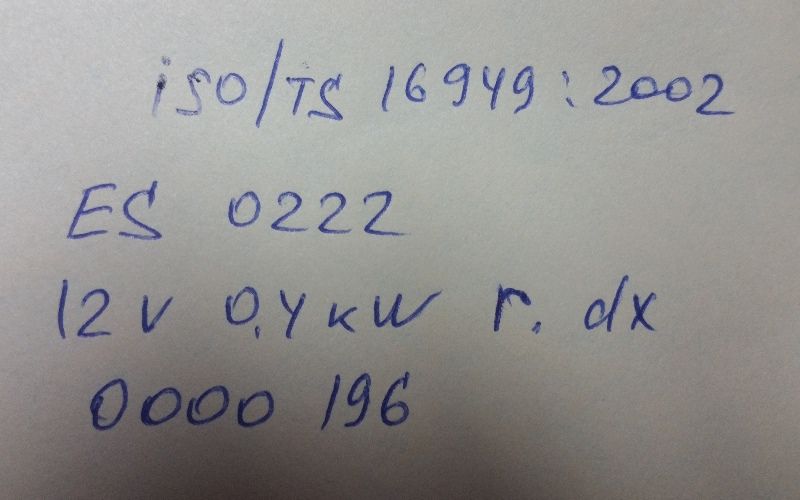 iSO/TS 16949:2002
ES 0222
12 V 0,4 kW r. dx
0000 196